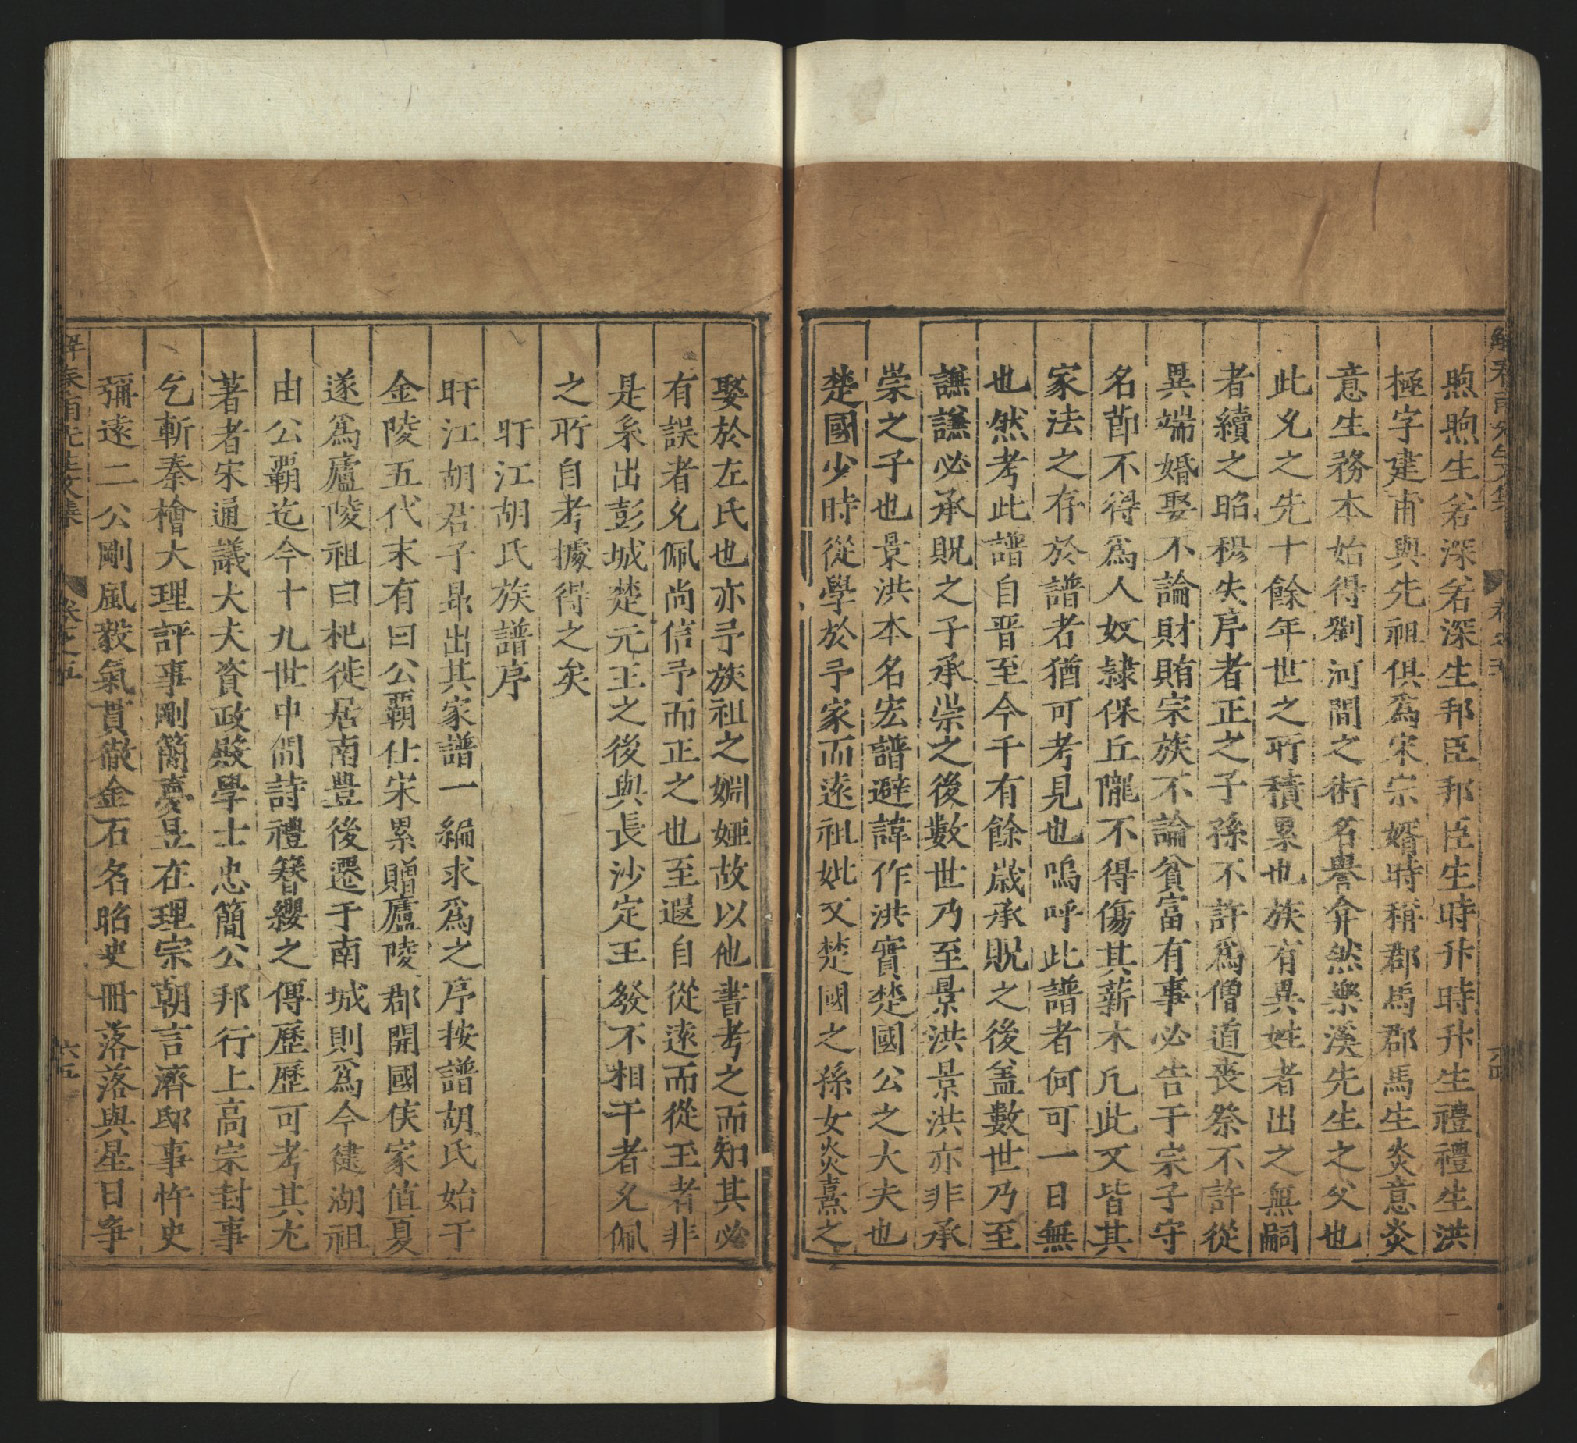 煦煦生若深若深生邦臣邦臣生時升時升生禮禮生洪
極字建甫與先祖俱爲宋宗婿時稱郡馬郡馬生炎意炎
意生務本始得劉河間之術名譽弇然樂溪先生之父也
此允之先十餘年世之所積累也族有異姓者出之無嗣
者續之昭穆失序者正之子孫不許爲僧道喪祭不許從
異端婚娶不論財賄宗族不論貧富有事必告于宗子守
名節不得爲人奴隷保丘隴不得傷其薪木凡此又皆其
家法之存於譜者猶可考見也嗚呼此譜者何可一日無
也然考此譜自晋至今千有餘歲承貺之後盖數世乃至
譙譙必承貺之子承崇之後數世乃至景洪景洪亦非承
崇之子也景洪本名宏譜避諱作洪實楚國公之大夫也
楚國少時從學於予家而遠祖妣又楚國之孫女炎熹之
娶於左氏也亦予族祖之婣婭故以他書考之而知其必
有誤者允佩尚信予而正之也至遐自從遠而從王者非
是系出彭城楚元王之後與長沙定王發不相干者允佩
之所自考據得之矣
盱江胡氏族譜序
盱江胡君子昻出其家譜一編求爲之序按譜胡氏始于
金陵五代末有曰公覇仕宋累贈廬陵郡開國侯家值夏
遂爲廬陵祖曰杞徙居南豊後遷于南城則爲今徤湖祖
由公覇迄今十九世中間詩禮簪纓之傳歷歷可考其尤
著者宋通議大夫資政殿學士忠簡公邦行上高宗封事
乞斬秦檜大理評事剛簡臺昱在理宗朝言濟邸事忤史
彌遠二公剛風毅氣貫徹金石名昭史冊落落與星日争
解春雨先生文集 卷之五 六五